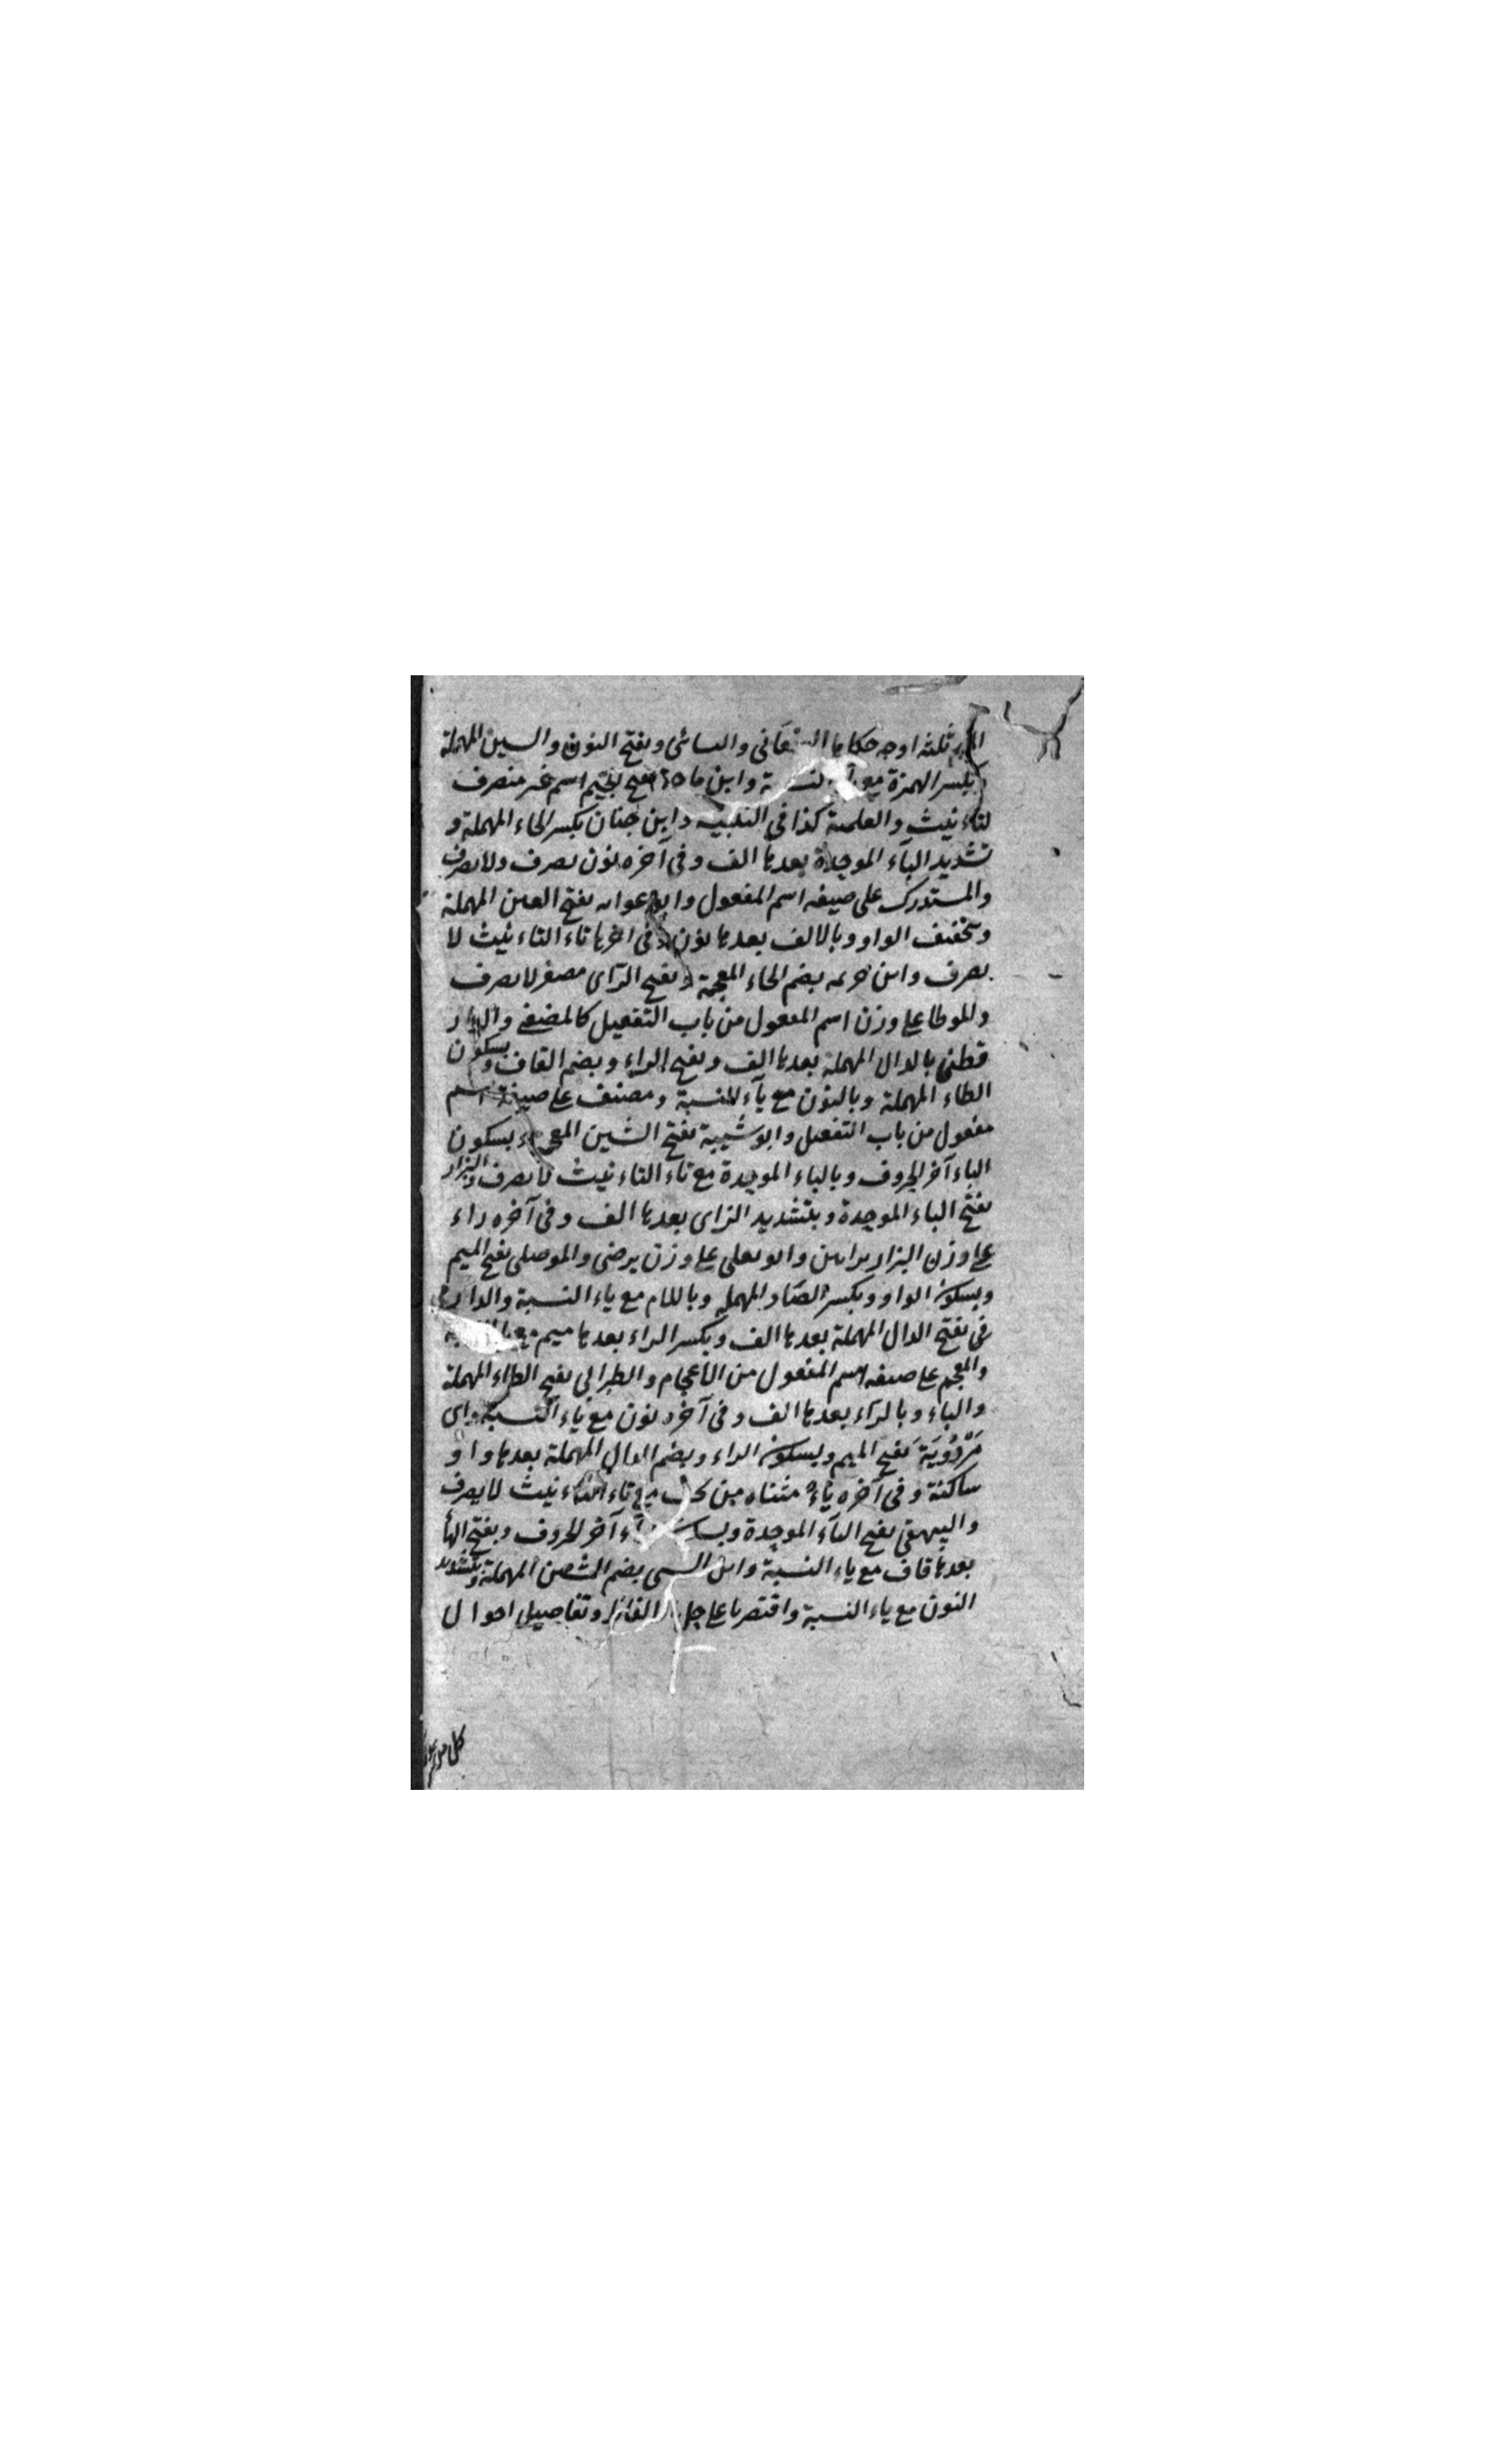 الميم ثلثة اوجه حكاها السمعاني والنسائى وبفتح النون والسين المهملة
وبكسر الهمزة مع ياء النسبة وابن ماجة بفتح بجيم اسم غير منصرف
لتاء نيث والعلمية كذا في التلبيه وابن حبان بكسر الحاء المهملة و
تشديد الباء الموحدة بعدها الف وفى آخره نون يصرف ولا يصرف
والمستدرك على صيغه اسم المفعول وابو عوانه بفتح العين المهملة
وتخفيف الواو وبالالف بعدها نون وفى اخرها تاء التاء نيث لا
يصرف وابن خزيمه بضم الخاء المعجمة وبفتح الزاى مصغر لا يصرف
والموطا على وزن اسم المفعول من باب التفعيل كالمضفى والدار
قطنى بالدال المهملة بعدها الف وبفتح الراء وبضم القاف وبسكون
الطاء المهملة وبالنون مع ياء النسبة ومصنف على صيغة اسم
مفعول من باب التفعيل وابو شيبة بفتح الشين المعجمة وبسكون
الياء آخر الحروف وبالباء الموحدة مع تاء التاء نيث لا يصرف والبزار
بفتح الباء الموحدة وبتشديد الزاى بعدها الف وفى آخره راء
على وزن البزار براءين وابو يعلى على وزن يرضى والموصلى بفتح الميم
وبسكون الواو وبكسر الصاد المهملة وباللام مع ياء النسبة والدارمى
فى بفتح الدال المهملة بعدها الف وبكسر الراء بعدها ميم مع ياء النسبة
والمعجم على صيغه اسم المفعول من الاعجام والطبرانى بفتح الطاء المهملة
والباء وبالراء بعدها الف وفى آخره نون مع ياء النسبة وابن
مَرْدُويَةَ بفتح الميم وبسكون الراء وبضم الدال المهملة بعدها واو
ساكنة وفى آخره ياء مثناه من تحت مع تاء التاء نيث لا يصرف
والبيهقى بفتح الباء الموحدة وبسكون الياء آخر الحروف وبفتح الهاء
بعدها قاف مع ياء النسبة وابن السنى بضم السين المهملة وبتشديد
النون مع ياء النسبة واقتصرنا على حل الفاظ وتفاصيل احوال